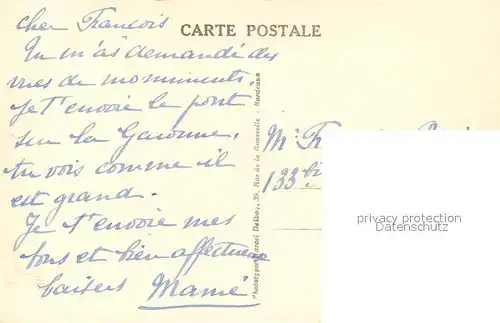 CARTE POSTALE
cher Francois
Tu m'as demandé des
vues de monuments.
Je t'envoie le pont
sur la Garonne.
tu vois comme il
est grand.
Je t'envoie mes
bons et bien affectueux
baisers Mamé
Phototypie Marcel Delboy, Rue de la Rousselle - Bordeaux
Mr
133 bis
privacy protection
Datenschutz